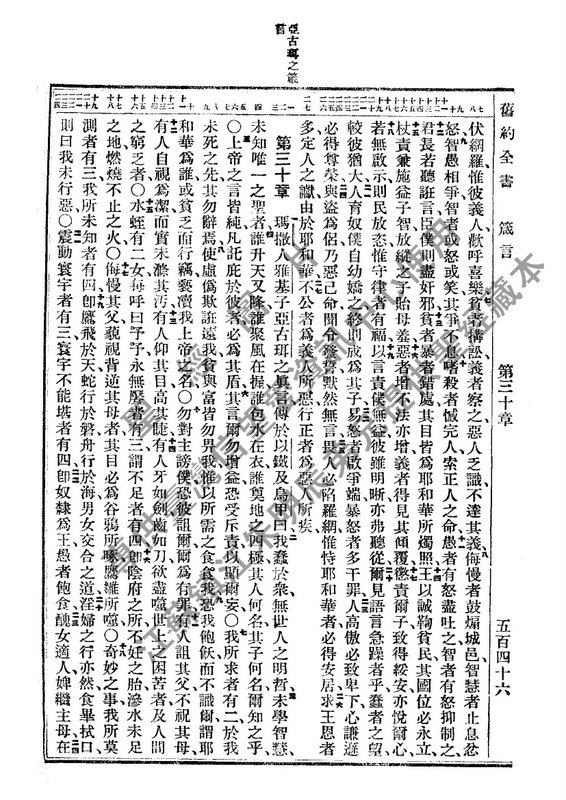 亞古珥之箴言
舊約全書 箴言 第三十章 五百四十六
伏網羅惟彼義人歡呼喜樂貧者搆訟義者察之惡人之識不達其義侮慢者鼓煽城邑智慧者止息忿
怒智愚相爭智者或怒或笑其爭不息嗜殺者憾完人索正人之命愚者有怒盡吐之智者有怒抑制之
君長若聽誑言臣僕則盡奸邪貧者暴者錯處其目皆爲耶和華所燭照王以誠鞫貧民其國位必永立
杖責兼施益子智放縱之子貽母羞惡者增不法亦增義者得見其傾覆懲責爾子致得綏安亦悅爾心
若無啟示則民放恣惟守律者有福以言責僕無益彼雖明晰亦弗聽從爾見語言急躁者乎蠢者之望
較彼猶大人育奴僕自幼嬌之終則成爲其子易怒者啟爭端暴怒者多干罪人高傲必致卑下心謙遜
必得尊榮與盜爲侶乃惡己命聞分發誓默然無言畏人必陷羅網惟恃耶和華者必得安居求王恩者
多定人之讞由於耶和華不公者爲義人所惡行正者爲惡人所疾
第三十章 瑪撒人雅基子亞古珥之眞言傳於以鐵及烏甲曰我蠢於衆無世人之明哲未學智慧
未知唯一之聖者誰升天又降誰聚風在握誰包水在衣誰奠地之四極其人何名其子何名爾知之乎
○上帝之言皆純凡託庇於彼者必爲其盾其言爾勿增益恐受斥責以顯爾妄○我所求者有二於我
未死之先其勿辭焉使虛僞欺誑遠我貧與富皆勿畀我惟以所需之食食我恐我飽飫而不識爾謂耶
和華爲誰或貧乏而行竊褻瀆我上帝之名○勿對主謗僕恐彼詛爾爾爲有罪有人詛其父不祝其母
有人自視爲潔而實未滌其汚有人仰其目高其睫有人牙如劍齒如刀欲盡噬世上之困苦者及人間
之窮乏者○水蛭有二女每呼曰予予永無厭者有三謂不足者有四卽陰府之所不妊之胎滲水未足
之地燃燒不止之火○侮慢其父藐視背逆其母者其目必爲谷鴉所啄鷹雛所噬○奇妙之事我所莫
測者有三我所未知者有四卽鷹飛於天蛇行於磐舟行於海男女交合之道淫婦之行亦然食畢拭口
則曰我未行惡○震動寰宇者有三寰宇不能堪者有四卽奴隸爲王愚者飽食醜女適人婢繼主母在